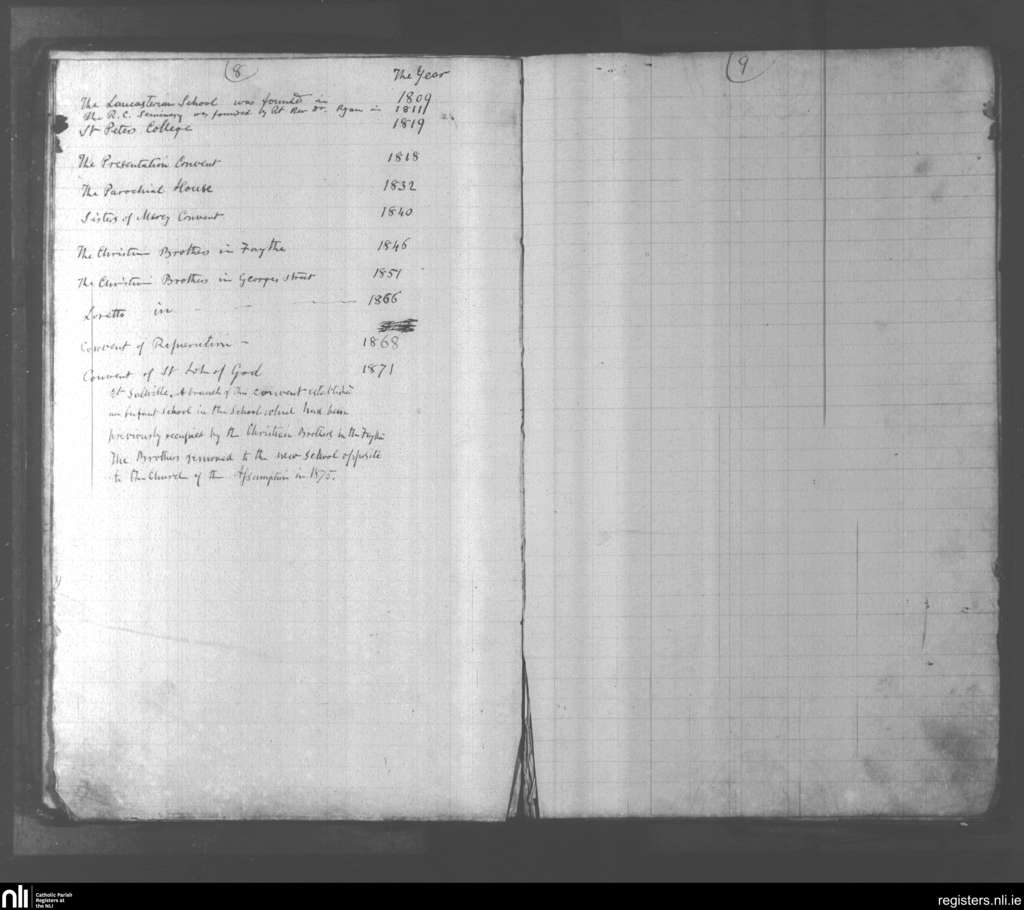 8
The Year
The Lancasterian School was founded in 1809
The R.C. Seminary was founded by Rt Rev Dr. Ryan in 1811
St Peters College 1819
The Presentation Convent 1818
The Parochial House 1832
Sisters of Mercy Convent 1840
The Christian Brothers in Faythe 1846
The Christian Brothers in Georges Street 1851
Loretto in 1866
Convent of Reparation 1868
Convent of St John of God 1871
At Sallville. A branch of this convent established
an infant school in the School which had been
previously occupied by the Christian Brothers in the Faythe
The Brothers removed to the new School opposite
to the Church of the Assumption in 1875.
9
nli
Catholic Parish
Registers at
the NLI
registers.nli.ie